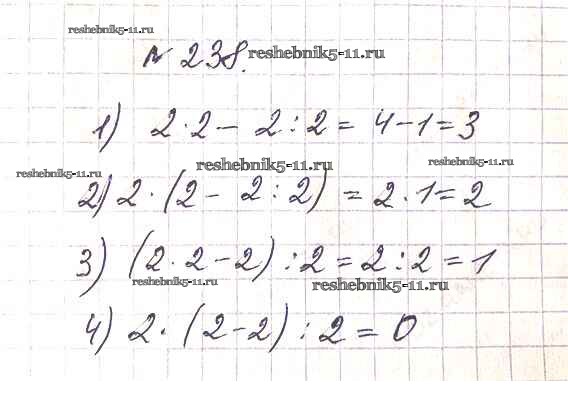 reshebnik5-11.ru
№ 238. reshebnik5-11.ru
1) 2·2 - 2:2 = 4-1=3
reshebnik5-11.ru reshebnik5-11.ru
reshebnik5-11.ru
2) 2·(2 - 2:2) = 2·1=2
3) (2·2-2):2=2:2=1
reshebnik5-11.ru reshebnik5-11.ru
4) 2·(2-2):2=0